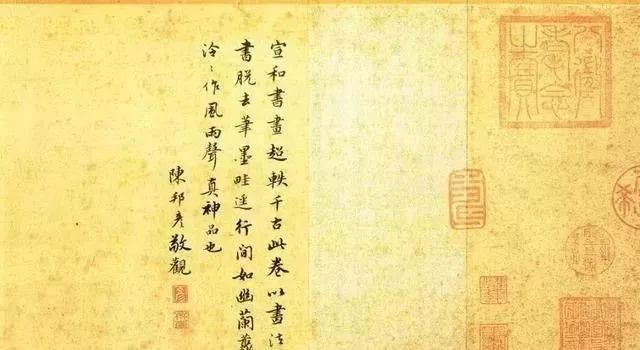 八徵
耄念
之寶
宣和書畫超軼千古此卷以畫法
書脫去筆墨畦逕行間如幽蘭叢
泠〻作風雨聲真神品也
陳邦彥敬觀